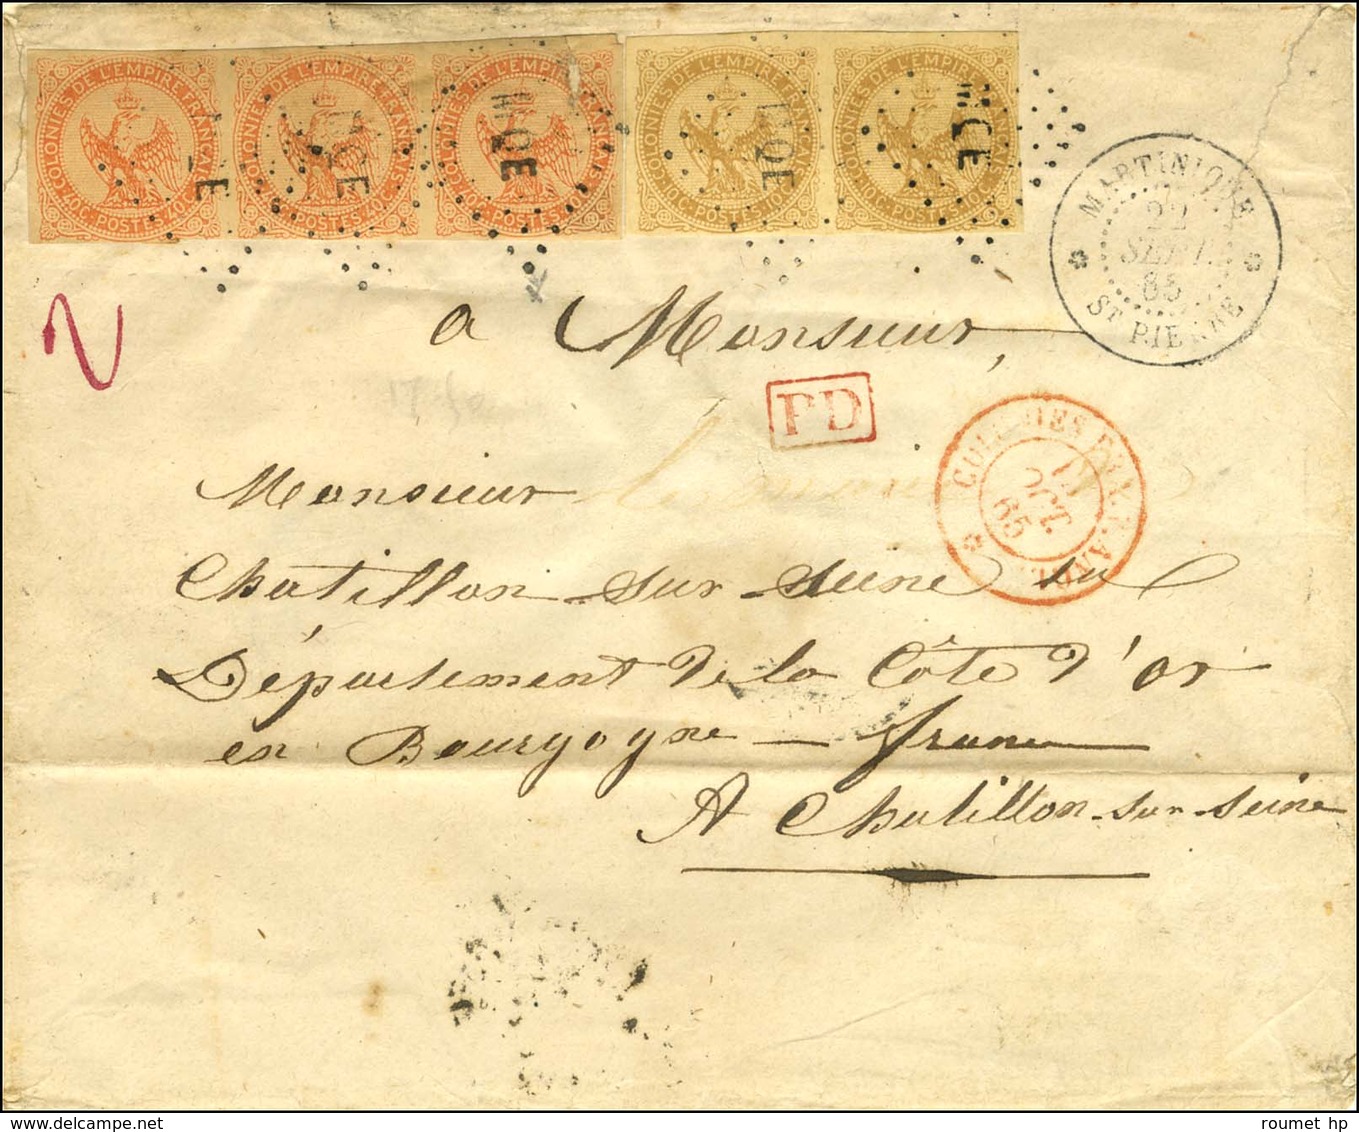 COLONIES DE L'EMPIRE FRANÇAIS
40C. POSTES 40C.
COLONIES DE L'EMPIRE FRANÇAIS
40C. POSTES 40C.
COLONIES DE L'EMPIRE FRANÇAIS
40C. POSTES 40C.
COLONIES DE L'EMPIRE FRANÇAIS
10C. POSTES 10C.
COLONIES DE L'EMPIRE FRANÇAIS
10C. POSTES 10C.
MQE
MQE
MARTINIQUE
22
SEPT.
65
ST PIERRE
2
a Monsieur,
PD
COLONIES FR.
OCT.
65
Monsieur
Chatillon sur seine
Département de la Côte d'or
en Bourgogne — france
A Chatillon-sur-seine
roumet hp